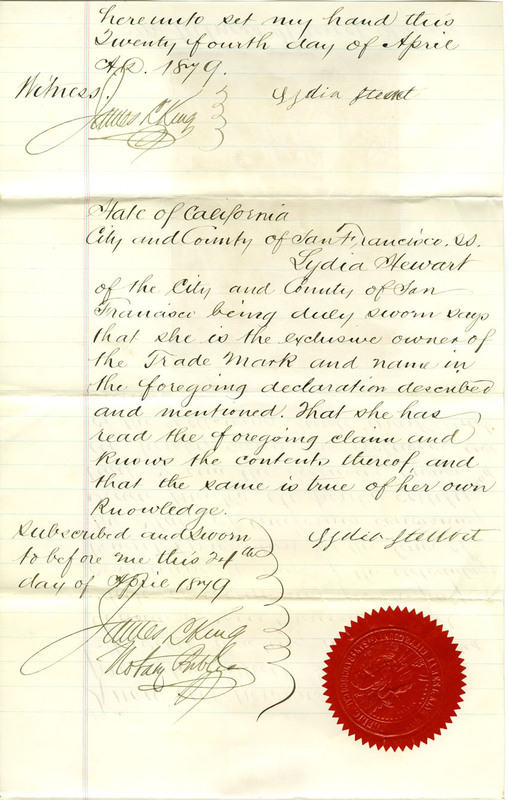 hereunto set my hand this
Twenty fourth day of April
AD. 1879.
Witness
Lydia Stewart
James L King
State of California
City and County of San Francisco. ss.
Lydia Stewart
of the City and County of San
Francisco being duly sworn says
that she is the exclusive owner of
the Trade Mark and name in
the foregoing declaration described
and mentioned. That she has
read the foregoing claim and
knows the contents thereof, and
that the same is true of her own
Knowledge.
Subscribed and Sworn
Lydia Stewart
to before me this 24th
day of April 1879
James L King
Notary Public